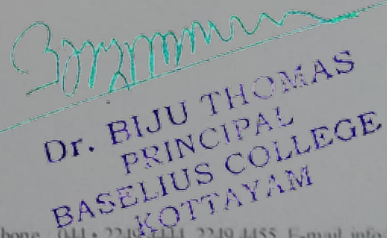 Dr. BIJU THOMAS
PRINCIPAL
BASELIUS COLLEGE
KOTTAYAM
2249 4455 E-mail info